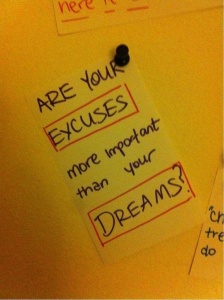 here is
ARE YOUR
EXCUSES
more important
than your
DREAMS?
tre
do